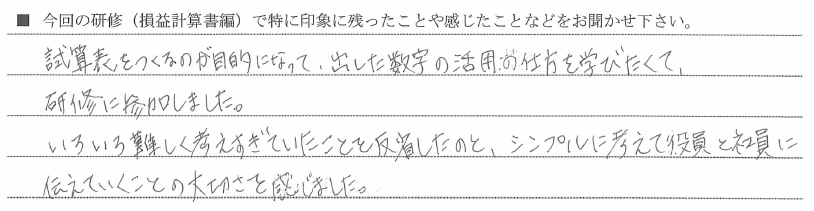 ■ 今回の研修（損益計算書編）で特に印象に残ったことや感じたことなどをお聞かせ下さい。
試算表をつくるのが目的になって、出した数字の活用の仕方を学びたくて、
研修に参加しました。
いろいろ難しく考えすぎていたことを反省したのと、シンプルに考えて役員と社員に
伝えていくことの大切さを感じました。